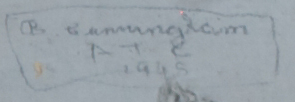 B. Cunningham
A T C
1945